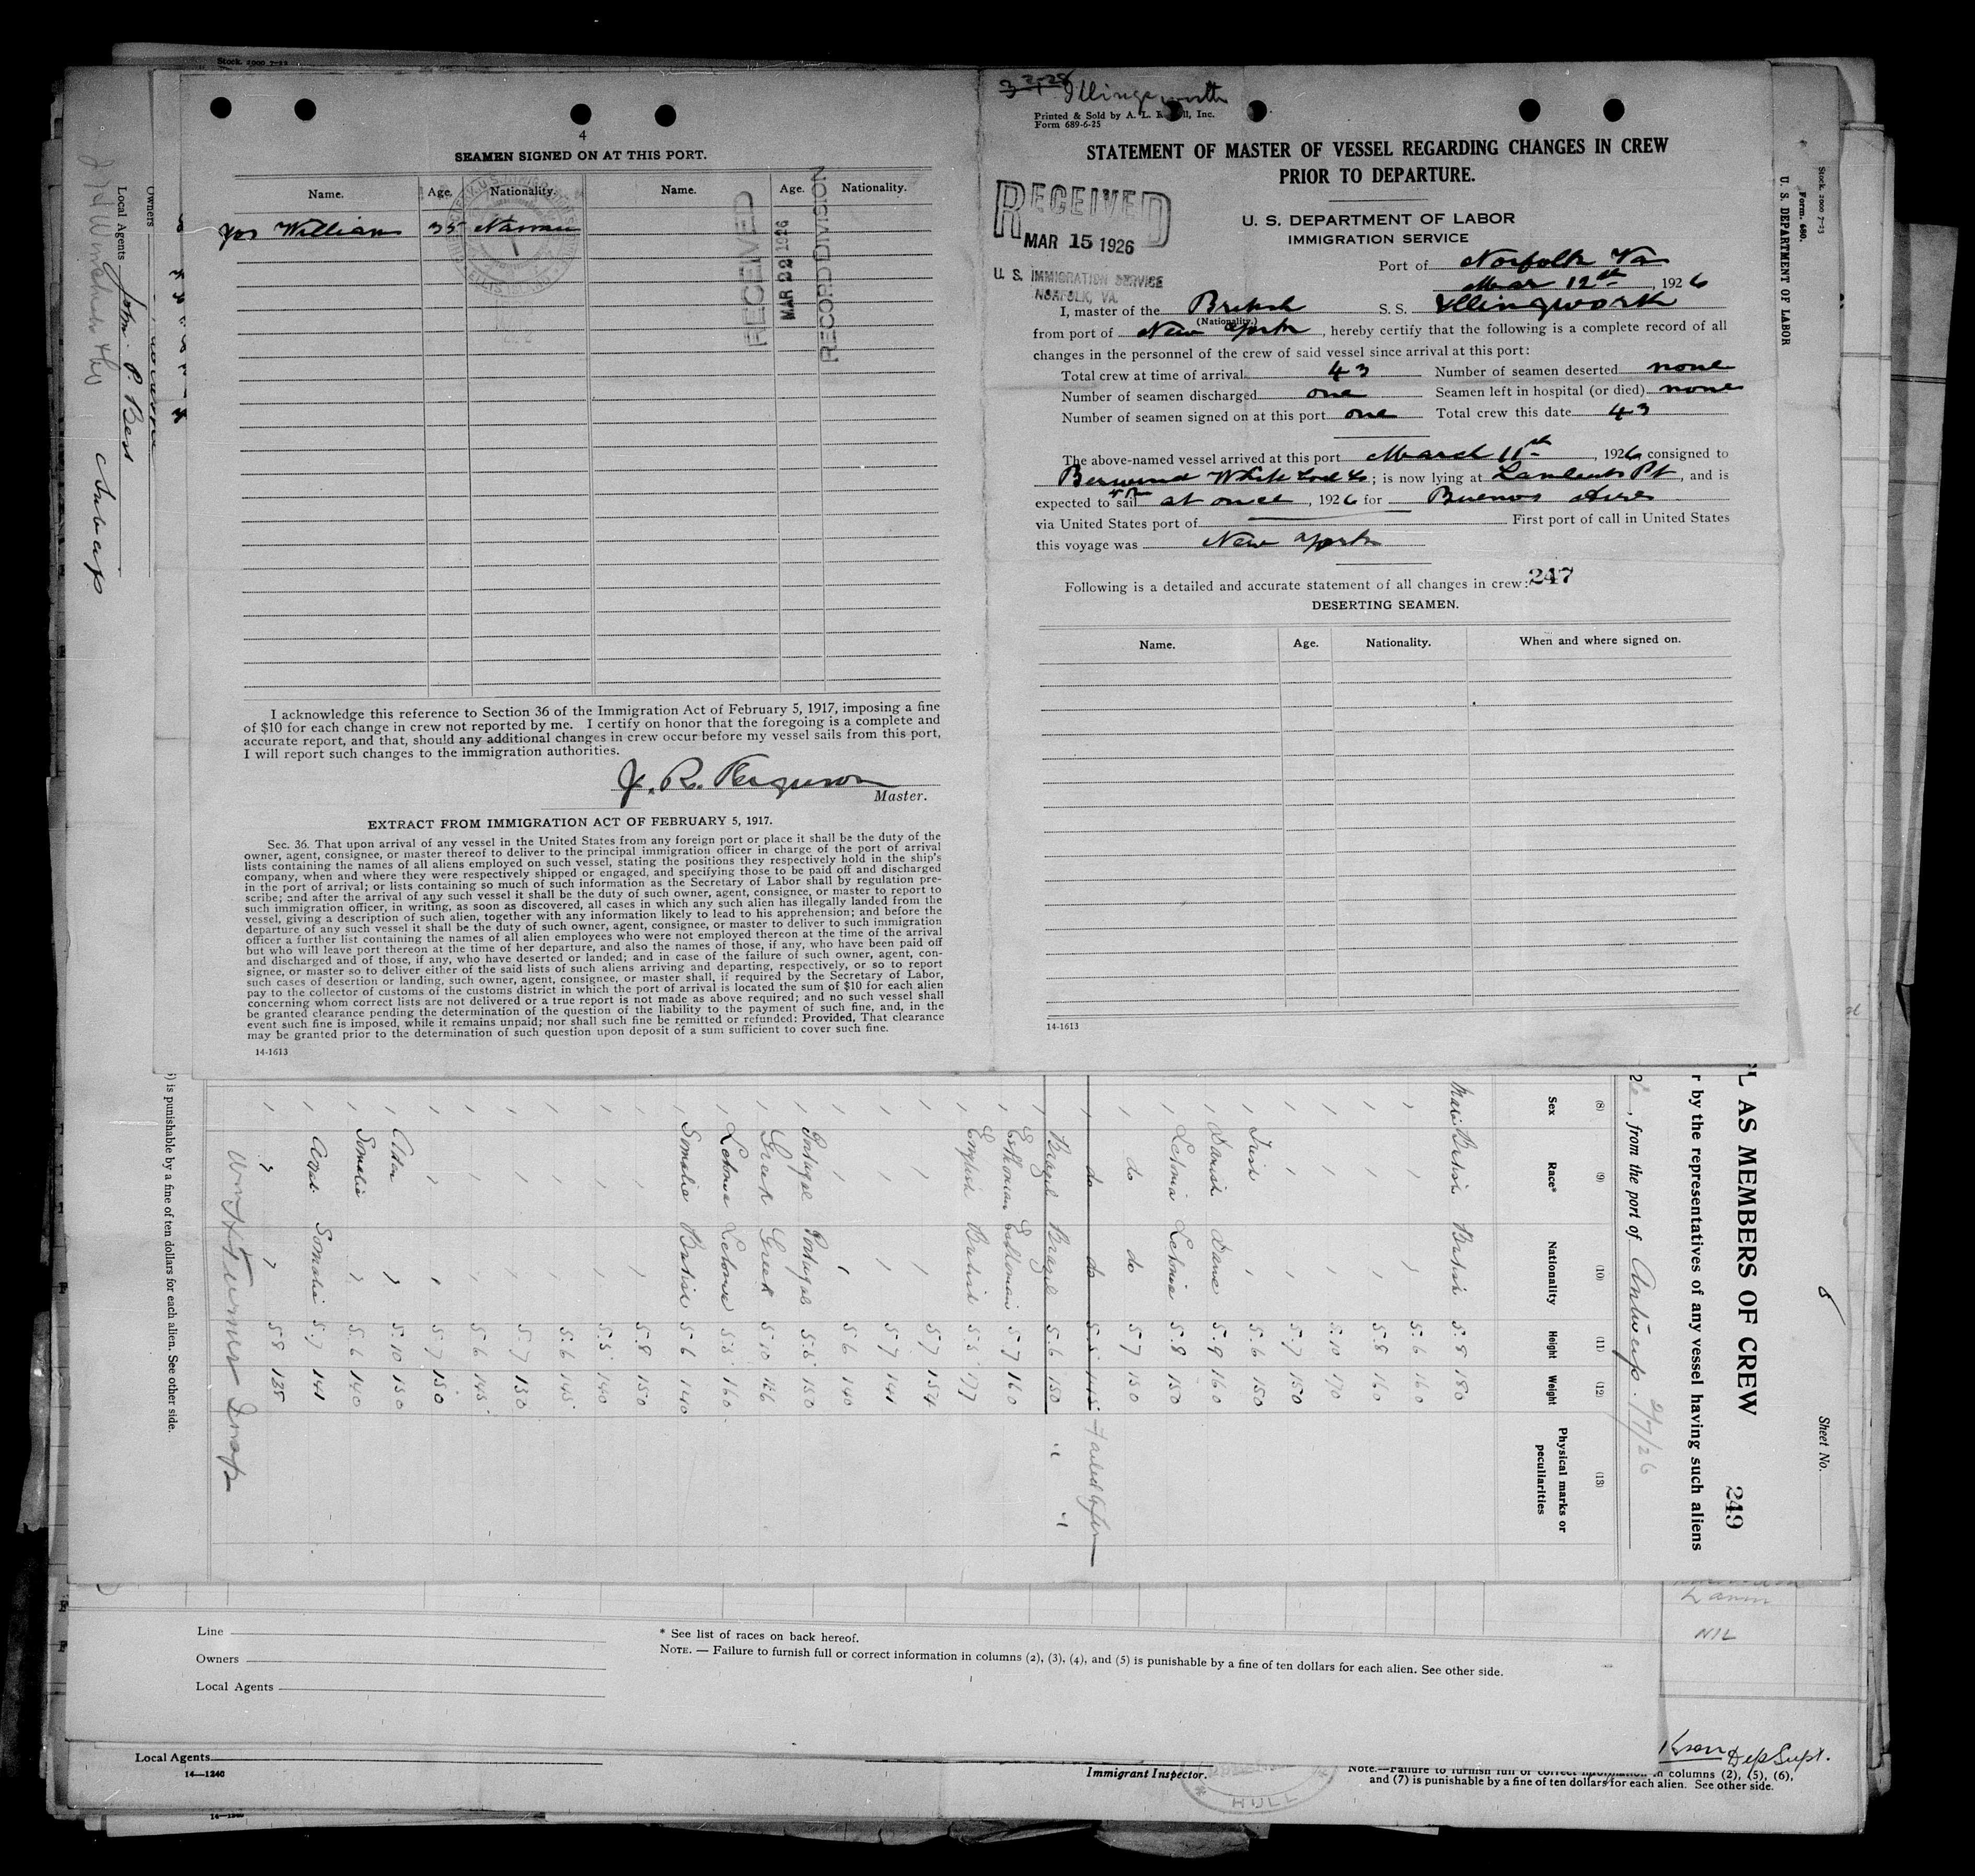 Stock. 2000 7-22
4
SEAMEN SIGNED ON AT THIS PORT.
Name. Age. Nationality. Name. Age. Nationality.
Jos Williams 35 Nassau
RECEIVED
MAR 22 1926
RECORD DIVISION
I acknowledge this reference to Section 36 of the Immigration Act of February 5, 1917, imposing a fine
of $10 for each change in crew not reported by me. I certify on honor that the foregoing is a complete and
accurate report, and that, should any additional changes in crew occur before my vessel sails from this port,
I will report such changes to the immigration authorities.
J. R. Ferguson
Master.
EXTRACT FROM IMMIGRATION ACT OF FEBRUARY 5, 1917.
Sec. 36. That upon arrival of any vessel in the United States from any foreign port or place it shall be the duty of the
owner, agent, consignee, or master thereof to deliver to the principal immigration officer in charge of the port of arrival
lists containing the names of all aliens employed on such vessel, stating the positions they respectively hold in the ship's
company, when and where they were respectively shipped or engaged, and specifying those to be paid off and discharged
in the port of arrival; or lists containing so much of such information as the Secretary of Labor shall by regulation pre-
scribe; and after the arrival of any such vessel it shall be the duty of such owner, agent, consignee, or master to report to
such immigration officer, in writing, as soon as discovered, all cases in which any such alien has illegally landed from the
vessel, giving a description of such alien, together with any information likely to lead to his apprehension; and before the
departure of any such vessel it shall be the duty of such owner, agent, consignee, or master to deliver to such immigration
officer a further list containing the names of all alien employees who were not employed thereon at the time of the arrival
but who will leave port thereon at the time of her departure, and also the names of those, if any, who have been paid off
and discharged and of those, if any, who have deserted or landed; and in case of the failure of such owner, agent, con-
signee, or master so to deliver either of the said lists of such aliens arriving and departing, respectively, or so to report
such cases of desertion or landing, such owner, agent, consignee, or master shall, if required by the Secretary of Labor,
pay to the collector of customs of the customs district in which the port of arrival is located the sum of $10 for each alien
concerning whom correct lists are not delivered or a true report is not made as above required; and no such vessel shall
be granted clearance pending the determination of the question of the liability to the payment of such fine, and, in the
event such fine is imposed, while it remains unpaid; nor shall such fine be remitted or refunded: Provided, That clearance
may be granted prior to the determination of such question upon deposit of a sum sufficient to cover such fine.
14-1613
Illingworth
Printed & Sold by A. L. Inc.
Form 689-6-25
STATEMENT OF MASTER OF VESSEL REGARDING CHANGES IN CREW
PRIOR TO DEPARTURE.
RECEIVED
MAR 15 1926
U. S. IMMIGRATION SERVICE
NORFOLK, VA.
U. S. DEPARTMENT OF LABOR
IMMIGRATION SERVICE
Port of Norfolk Va
Mar 12th, 1926
I, master of the British S. S. Illingwork
(Nationality.)
from port of New York, hereby certify that the following is a complete record of all
changes in the personnel of the crew of said vessel since arrival at this port:
Total crew at time of arrival 43 Number of seamen deserted none
Number of seamen discharged one Seamen left in hospital (or died) none
Number of seamen signed on at this port one Total crew this date 43
The above-named vessel arrived at this port March 11th, 1926 consigned to
Berwind White Coal Co; is now lying at Lamberts Pt, and is
expected to sail at once, 1926 for Buenos Aires
via United States port of First port of call in United States
this voyage was New York
Following is a detailed and accurate statement of all changes in crew:
247
DESERTING SEAMEN.
Name. Age. Nationality. When and where signed on.
14-1613
Stock. 2000 7-23
Form. 680.
U. S. DEPARTMENT OF LABOR
Owners
Local Agents John P. Best Antwerp
Sheet No.
249
L AS MEMBERS OF CREW
r by the representatives of any vessel having such aliens
, from the port of Antwerp. 2/7/26
(8) (9) (10) (11) (12) (13)
Sex Race* Nationality Height Weight Physical marks or peculiarities
British British 5.8 180
5.6 160
5.8 160
5.10 170
5.7 150
Irish 5.6 150
Danish Dane 5.9 160
Letonia Letonia 5.8 150
do do 5.7 150
do do 5.5 145 Failed to join
Brazil Brazil 5.6 150 " "
Esthonian Esthonian 5.7 160
English British 5.5 177
5.7 154
5.7 141
5.6 140
Portugal Portugal 5.5 150
Greek Greek 5.10 166
Letonia Letonia 5.5 160
Somalia British 5.6 140
5.8 150
5.5 140
5.6 145
5.7 130
5.6 145
5.7 150
Aden 5.10 130
Somalia 5.6 140
Somalia 5.7 141
5.8 138
) is punishable by a fine of ten dollars for each alien. See other side.
Line
Owners
Local Agents
* See list of races on back hereof.
NOTE. — Failure to furnish full or correct information in columns (2), (3), (4), and (5) is punishable by a fine of ten dollars for each alien. See other side.
NIL
Local Agents
14—1240
Immigrant Inspector.
HULL
Dep Supt.
Note.—Failure to furnish full or correct information in columns (2), (5), (6),
and (7) is punishable by a fine of ten dollars for each alien. See other side.